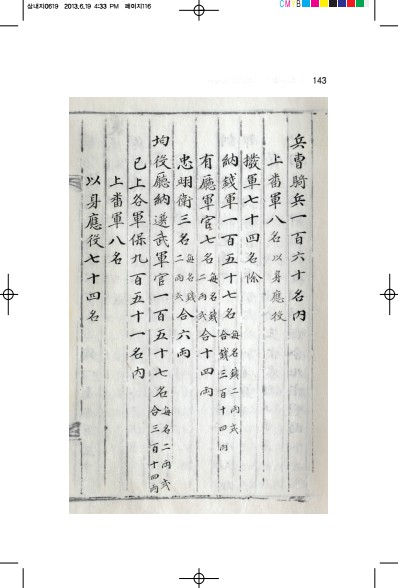 심내지0619 2013.6.19 4:33 PM 페이지116
CM B
143
兵曹騎兵一百六十名內
上番軍八名以身應役
撥軍七十四名除
納錢軍一百五十七名每名錢二兩式合錢三百十四兩
有廳軍官七名每名錢二兩式合十四兩
忠翊衛三名每名錢二兩式合六兩
均役廳納選武軍官一百五十七名每名二兩式合三百十四兩
已上各軍保九百五十一名內
上番軍八名
以身應役七十四名